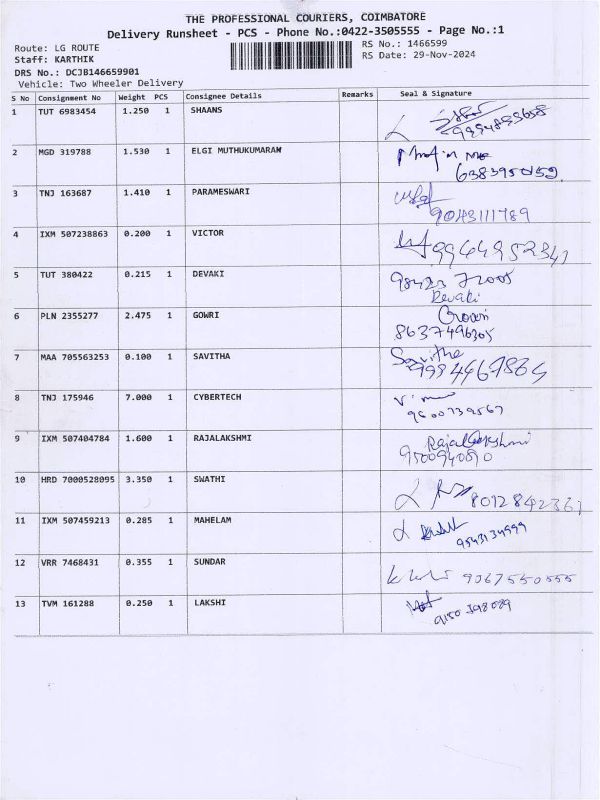 THE PROFESSIONAL COURIERS, COIMBATORE
Delivery Runsheet - PCS - Phone No.:0422-3505555 - Page No.:1
Route: LG ROUTE
RS No.: 1466599
Staff: KARTHIK
RS Date: 29-Nov-2024
DRS No.: DCJB146659901
Vehicle: Two Wheeler Delivery
S No Consignment No Weight PCS Consignee Details Remarks Seal & Signature
1 TUT 6983454 1.250 1 SHAANS
2 MGD 319788 1.530 1 ELGI MUTHUKUMARAN
3 TNJ 163687 1.410 1 PARAMESWARI
9043111789
4 IXM 507238863 0.200 1 VICTOR
9964952341
5 TUT 380422 0.215 1 DEVAKI
Devaki
6 PLN 2355277 2.475 1 GOWRI
Gowri
8637496305
7 MAA 705563253 0.100 1 SAVITHA
Savitha
8 TNJ 175946 7.000 1 CYBERTECH
9600739567
9 IXM 507404784 1.600 1 RAJALAKSHMI
Rajalakshmi
9500940890
10 HRD 7000528095 3.350 1 SWATHI
8012842361
11 IXM 507459213 0.285 1 MAHELAM
9543134999
12 VRR 7468431 0.355 1 SUNDAR
9367550555
13 TVM 161288 0.250 1 LAKSHI
9150398089